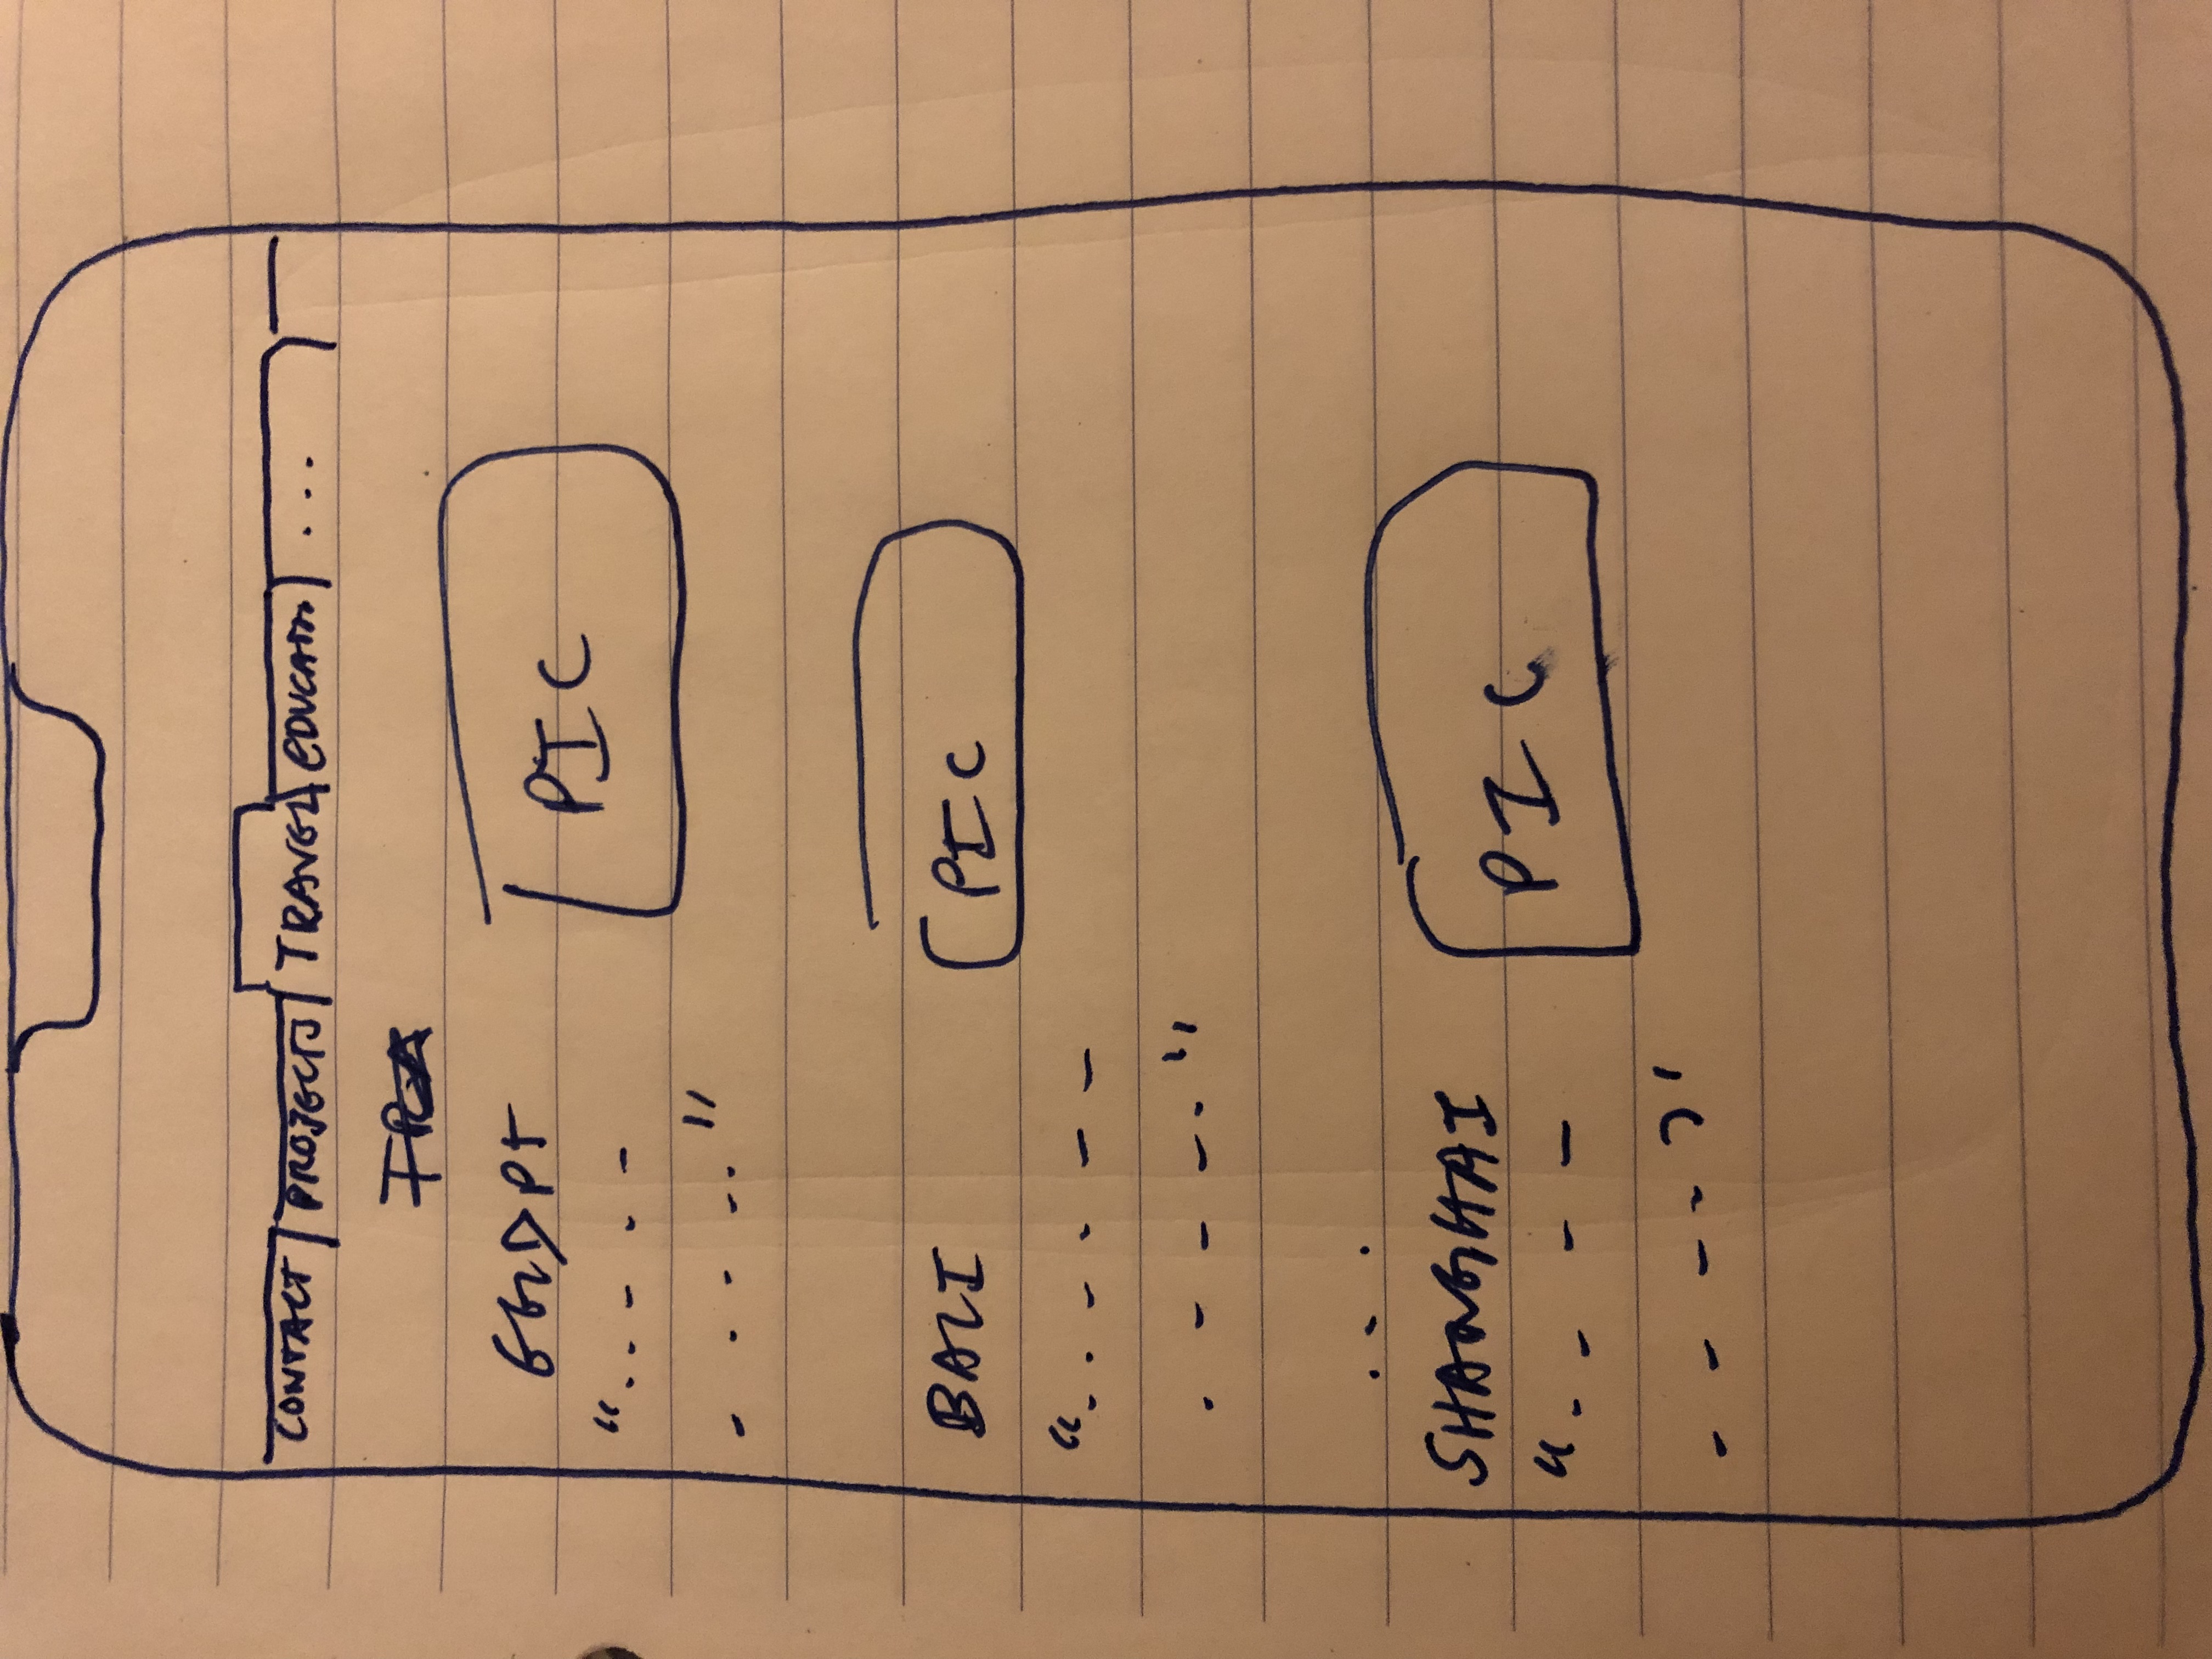 CONTACT PROJECTS TRAVEL EDUCATION ...
PIC
“..- . -
- . . - -..”
BALI PIC
“.. - . - -
. - - -.”
...
SHANGHAI
PIC
“. - - -
- - - - ”